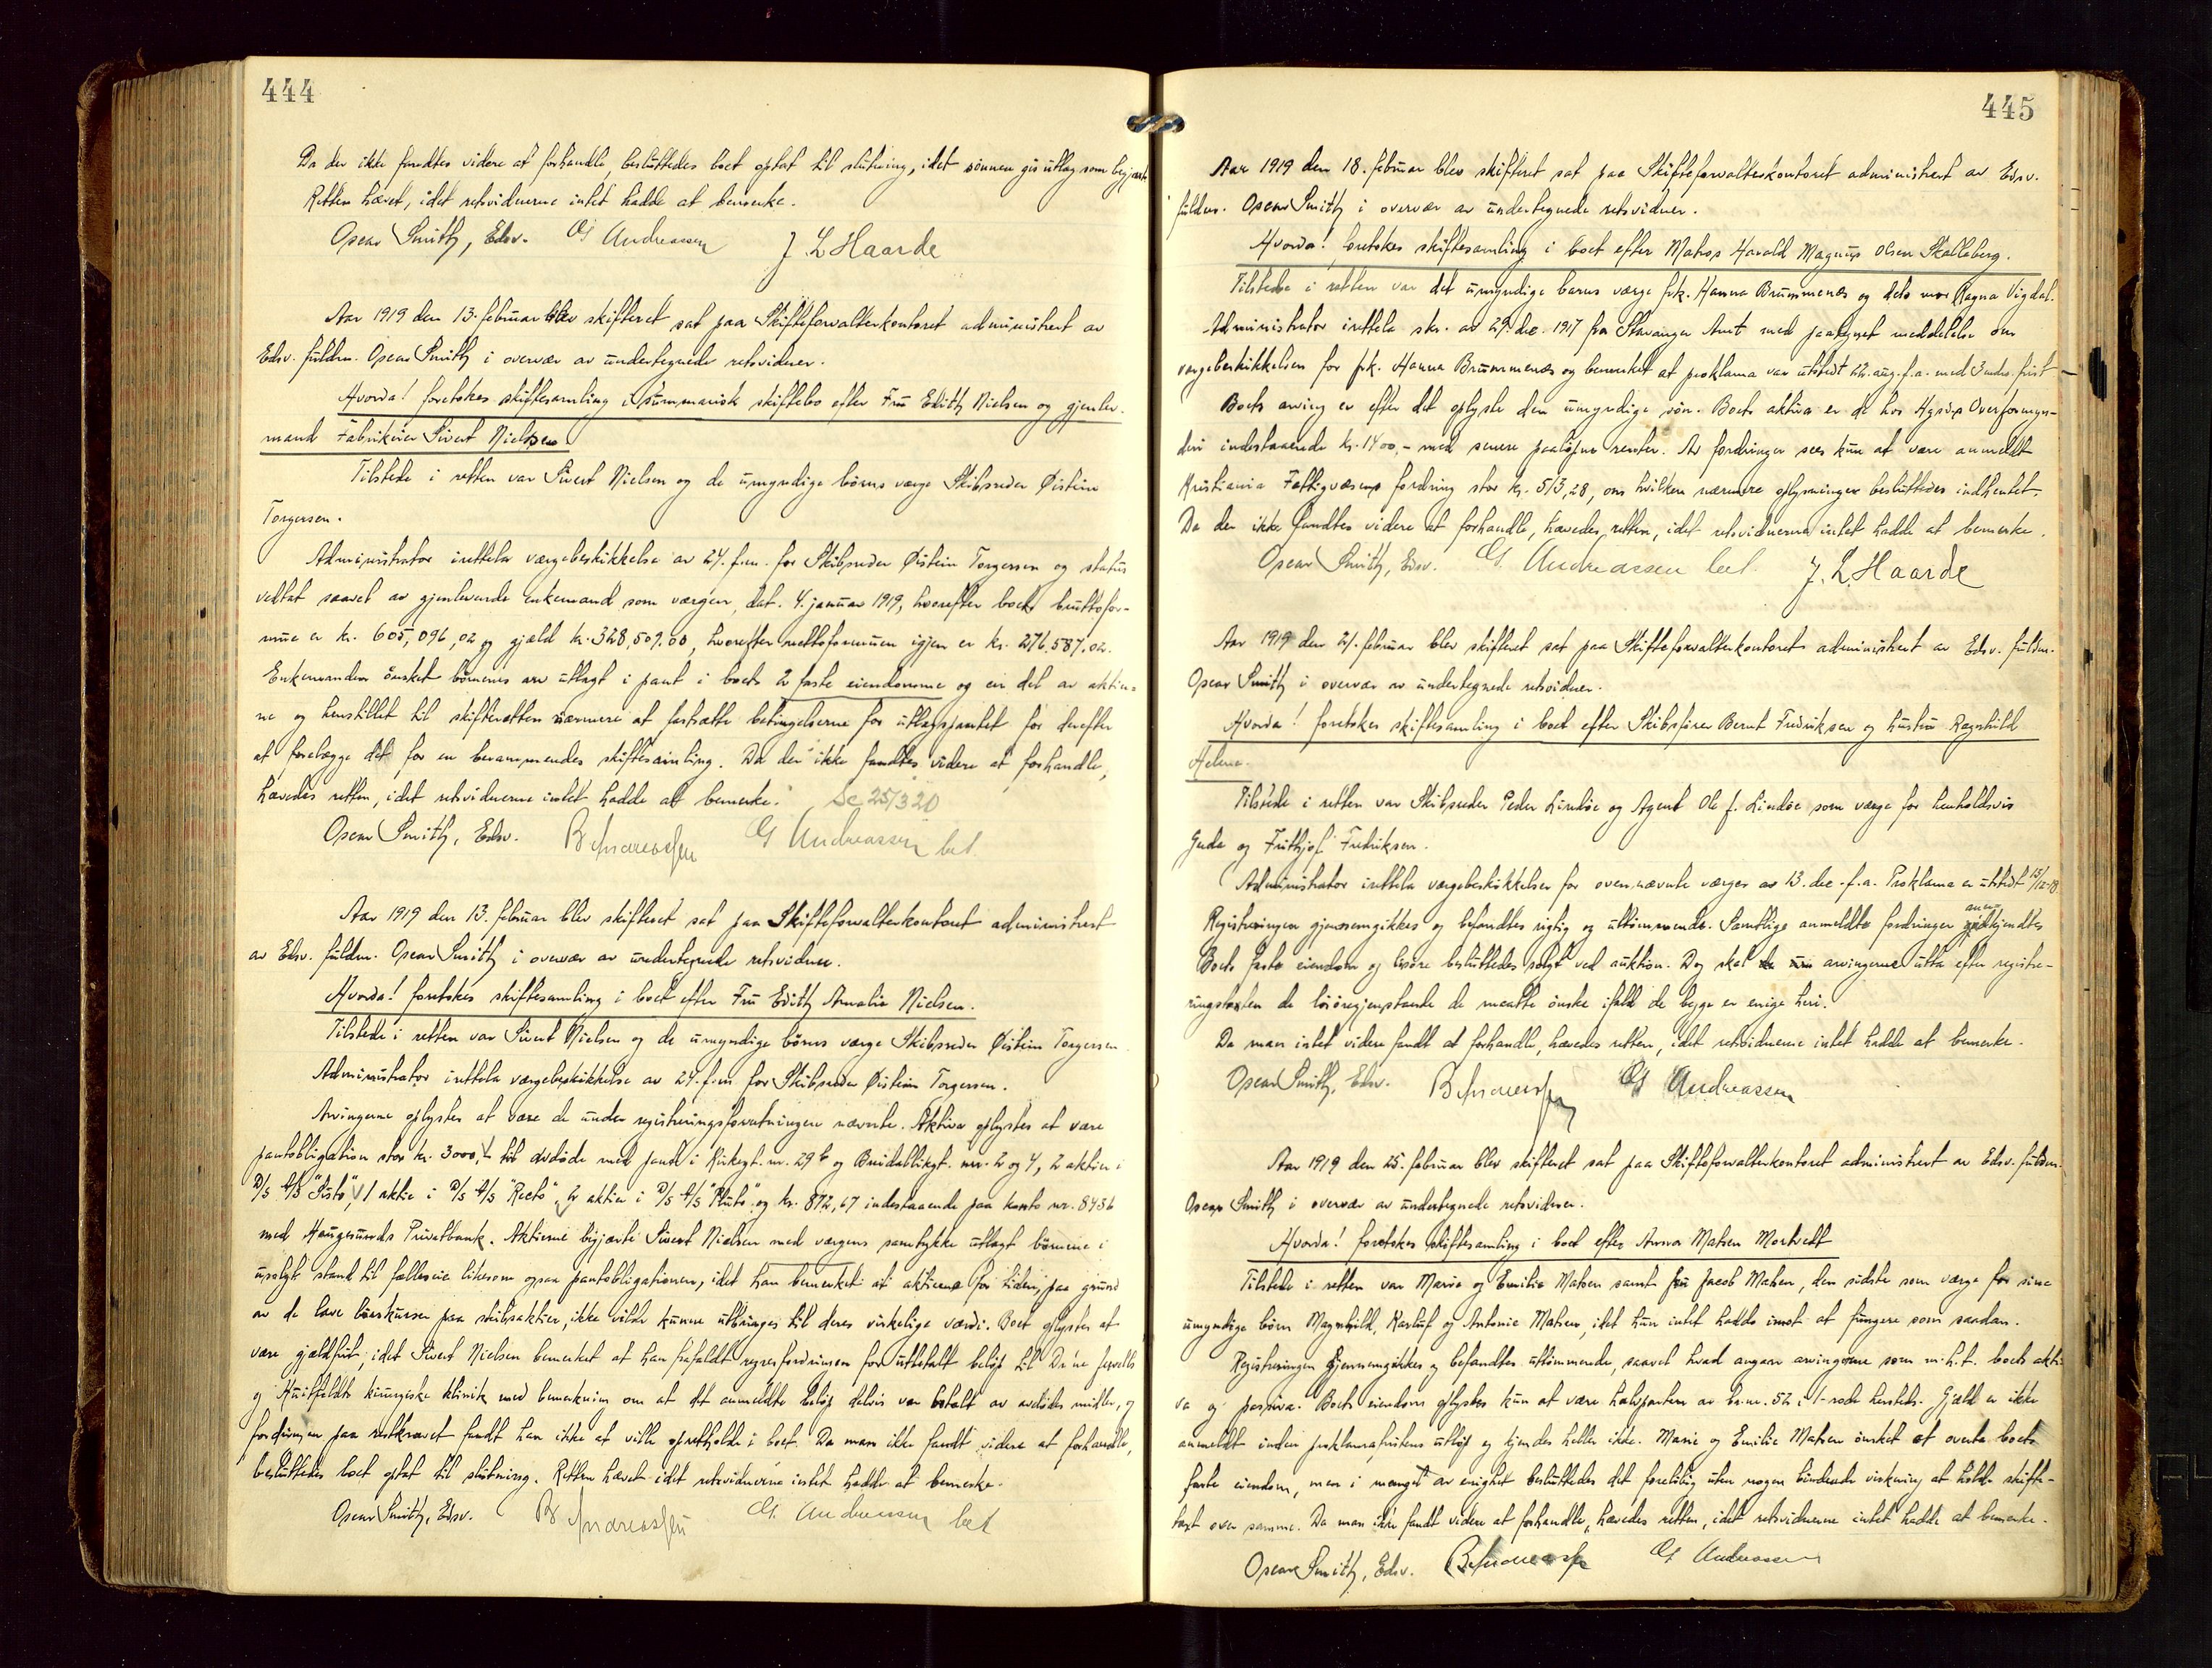 444
Da der ikke fandtes videre at forhandle, besluttedes boet optat til slutning, idet sönnen gis utlag som begjært
Retten hævet, idet retsvidnerne intet hadde at bemerke.
Oscar Smith, Edsv. G Andreassen J. L Haarde
Aar 1919 den 13. februar blev skifteret sat paa Skifteforvalterkontoret administrert av
Edsv. fuldm. Oscar Smith i overvær av undertegnede retsvidner.
Hvorda! foretokes skiftesamling i summarisk skiftebo efter Fru Edith Nielsen og gjenlev.
mand Fabrikeier Sivert Nielsen
Tilstede i retten var Sivert Nielsen og de umyndige börns værge Skibsreder Øistein
Torgersen.
Administrator irettela værgebeskikkelse av 24. f.m. for Skibsreder Øistein Torgersen og status
vedtat saavel av gjenlevende enkemand som værgen, dat. 4. januar 1919, hvorefter boets bruttofor-
mue er kr. 605,096,02 og gjæld kr. 328,509.00, hvorefter nettoformuen igjen er kr. 276.587.02.
Enkemanden önsket börnenes arv utlagt i pant i boets 2 faste eiendomme og en del av aktier-
ne og henstillet til skifteretten nærmere at fastsætte betingelserne for utlægspantet for derefter
at forelægge det for en berammendes skiftesamling. Da der ikke fandtes videre at forhandle,
hævedes retten, idet retsvidnerne intet hadde at bemerke. Se 25/3 20
Oscar Smith, Edsv. B Andreassen G Andreassen
Aar 1919 den 13. februar blev skifteret sat paa Skifteforvalterkontoret administrert
av Edsv. fuldm. Oscar Smith i overvær av undertegnede retsvidner.
Hvorda! foretokes skiftesamling i boet efter Fru Edith Amalie Nielsen.
Tilstede i retten var Sivert Nielsen og de umyndige börns værge Skibsreder Øistein Torgersen
Administrator irettela værgebeskikkelse av 24. f.m for Skibsreder Øistein Torgersen.
Arvingerne oplystes at være de under registreringsforretningen nævnte. Aktiva oplystes at være
pantobligation stor kr. 3000,- til avdöde med pant i Kirkegt. nr. 29b og Breidablikgt. nr. 2 og 4, 2 aktier i
D/S A/S "Justo", 1 aktie i D/S A/S "Recto", 2 aktier i D/S A/S "Pluto" og kr. 872,67 indestaaende paa konto nr. 8456
med Haugesunds Privatbank. Aktierne begjærte Sivert Nielsen med værgens samtykke utlagt börnene i
usolgt stand til fælleseie likesom ogsaa pantobligationen, idet han bemerket at aktierne for tiden, paa grund
av de lave börskurser paa skibsaktier, ikke vilde kunne utbringes til deres virkelige værdi. Boet oplystes at
være gjældfrit, idet Sivert Nielsen bemerket at han frafaldt regresfordringen for utbetalt belöp til
og Huitfeldts kirurgiske klinik med bemerkning om at det anmeldte belöp delvis var betalt av avdödes midler, og
fordringen paa restkravet fandt han ikke at ville opretholde i boet. Da man ikke fandt videre at forhandle,
besluttedes boet optat til slutning. Retten hævet idet retsvidnerne intet hadde at bemerke.
Oscar Smith, Edsv. B Andreassen G. Andreassen
445
Aar 1919 den 18. februar blev skifteret sat paa Skifteforvalterkontoret administrert av Edsv.
fuldm. Oscar Smith i overvær av undertegnede retsvidner.
Hvorda! foretokes skiftesamling i boet efter Matros Harald Magnus Olsen Skalleberg.
Tilstede i retten var det umyndige barns værge frk. Hanna Brummenæs og dets mor Ragna Vigdal.
Administrator irettela skr. av 29. dec. 1917 fra Stavanger Amt med paategnet meddelelse om
værgebeskikkelsen for frk. Hanna Brummenæs og bemerket at proklama var utstedt 22. aug. f.a. med 3 mdrs. frist
Boets arving er efter det oplyste den umyndige sön. Boets aktiva er de hos Hgsds Overformyn-
deri indestaaende kr. 1400,- med senere paalöpne renter. Av fordringer sees kun at være anmeldt
Kristiania Fattigvæsens fordring stor kr. 513,28, om hvilken nærmere oplysninger besluttedes indhentet.
Da der ikke fandtes videre at forhandle, hævedes retten, idet retsvidnerne intet hadde at bemerke.
Oscar Smith, Edsv. G. Andreassen J. L Haarde
Aar 1919 den 21. februar blev skifteret sat paa Skifteforvalterkontoret administrert av Edsv. fuldm.
Oscar Smith i overvær av undertegnede retsvidner.
Hvorda! foretokes skiftesamling i boet efter Skibsförer Bernt Fredriksen og hustru Ragnhild
Helene.
Tilstede i retten var Skibsreder Peder Lindöe og Agent Ole J. Lindöe som værge for henholdsvis
Gude og Frithjof Fredriksen.
Administrator irettela værgebeskikkelser for ovennævnte værger av 13. dec. f.a. Proklama er utstedt 15/12-18.
Registreringen gjennemgikkes og befandtes rigtig og uttömmende. Samtlige anmeldte fordringer godkjendtes
Boets faste eiendom og lösöre besluttedes solgt ved auktion. Dog skal arvingerne utta efter registre-
ringstaksten de lösöregjenstande de maatte önske ifald de begge er enige heri.
Da man intet videre fandt at forhandle, hævedes retten, idet retsvidnerne intet hadde at bemerke.
Oscar Smith, Edsv. B Andreassen G Andreassen
Aar 1919 den 25. februar blev skifteret sat paa Skifteforvalterkontoret administrert av Edsv. fuldm.
Oscar Smith i overvær av undertegnede retsvidner.
Hvorda! foretokes skiftesamling i boet efter Anna Matsen Mortvedt
Tilstede i retten var Marie og Emilie Matsen samt fru Jacob Matsen, den sidste som værge for sine
umyndige börn Magnhild, Karluf og Antonie Matsen, idet hun intet hadde imot at fungere som saadan.
Registreringen gjennemgikkes og befandtes uttömmende, saavel hvad angaar arvingerne som m.h.t. boets akti
va og passiva. Boets eiendom oplystes kun at være halvparten av br.nr. 52 i 1-rode hersteds. Gjæld er ikke
anmeldt inden proklamafristens utlöp og kjendes heller ikke. Marie og Emilie Matsen önsket at overta boets
faste eiendom, men i mangel av enighet besluttedes det forelöbig uten nogen bindende virkning at holde skifte-
takst over samme. Da man ikke fandt videre at forhandle, hævedes retten, idet retsvidnerne intet hadde at bemerke.
Oscar Smith, Edsv. B Andreassen G Andreassen